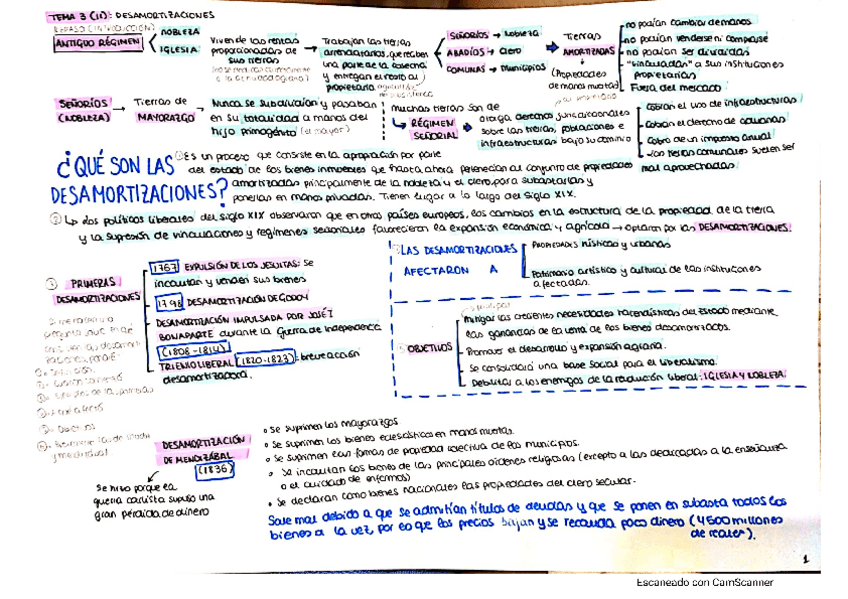 TEMA 3 (II): DESAMORTIZACIONES
REPASO (INTRODUCCIÓN)
ANTIGUO RÉGIMEN
NOBLEZA
IGLESIA
Viven de las rentas
proporcionadas de
sus tierras
Trabajan las tierras
arrendatarios, que reciben
una parte de la cosecha
y entregan el resto al
propietario
SEÑORÍOS → Nobleza
ABADÍOS → Clero
COMUNAS → Municipios
Tierras
AMORTIZADAS
(Propiedades
de manos muertas)
no podían cambiar de manos
no podían venderse ni comprarse
no podían ser divididas
"vinculadas" a sus instituciones
propietarias
Fuera del mercado
SEÑORÍOS
(NOBLEZA)
Tierras de
MAYORAZGO
Nunca se subdividían y pasaban
en su totalidad a manos del
hijo primogénito (el mayor)
muchas tierras son de
RÉGIMEN
SEÑORIAL
otorga derechos jurisdiccionales
sobre las tierras, poblaciones e
infraestructuras bajo su dominio
Cobran el uso de infraestructuras
Cobran el derecho de aduanas
Cobro de un impuesto anual
Las tierras comunales suelen ser
mal aprovechadas.
¿QUÉ SON LAS
DESAMORTIZACIONES?
① Es un proceso que consiste en la apropiación por parte
del estado de los bienes inmuebles que hasta ahora pertenecían al conjunto de propiedades
amortizadas principalmente de la nobleza y el clero, para subastarlas y
ponerlas en manos privadas. Tienen lugar a lo largo del Siglo XIX.
② ↳ Los políticos liberales del siglo XIX observaron que en otros países europeos, los cambios en la estructura de la propiedad de la tierra
y la supresión de vinculaciones y regímenes señoriales favorecieron la expansión económica y agrícola → Optaron por las DESAMORTIZACIONES.
③ PRIMERAS
DESAMORTIZACIONES
1767 EXPULSIÓN DE LOS JESUITAS: Se
incautan y venden sus bienes
1798 DESAMORTIZACIÓN DE GODOY
DESAMORTIZACIÓN IMPULSADA POR JOSÉ I
BONAPARTE durante la Guerra de Independencia
(1808-1814)
TRIENIO LIBERAL (1820-1823): breve acción
desamortizadora.
LAS DESAMORTIZACIONES
AFECTARON A
PROPIEDADES rústicas y urbanas
Patrimonio artístico y cultural de las instituciones
afectadas.
OBJETIVOS
Mitigar las crecientes necesidades hacendísticas del Estado mediante
las ganancias de la venta de los bienes desamortizados.
Promover el desarrollo y expansión agraria.
Se consolidará una base social para el liberalismo.
Debilitar a los enemigos de la revolución liberal: IGLESIA Y NOBLEZA.
DESAMORTIZACIÓN
DE MENDIZÁBAL
(1836)
Se hizo porque la
guerra carlista supuso una
gran pérdida de dinero
• Se suprimen los mayorazgos
• Se suprimen los bienes eclesiásticos en manos muertas.
• Se suprimen las formas de propiedad colectiva de los municipios.
• Se incautan los bienes de las principales órdenes religiosas (excepto a las dedicadas a la enseñanza
o el cuidado de enfermos)
• Se declaran como bienes nacionales las propiedades del clero secular.
Sale mal debido a que se admitían títulos de deudas y que se ponen en subasta todos los
bienes a la vez, por lo que los precios bajan y se recauda poco dinero (4500 millones
de reales).
1
Escaneado con CamScanner